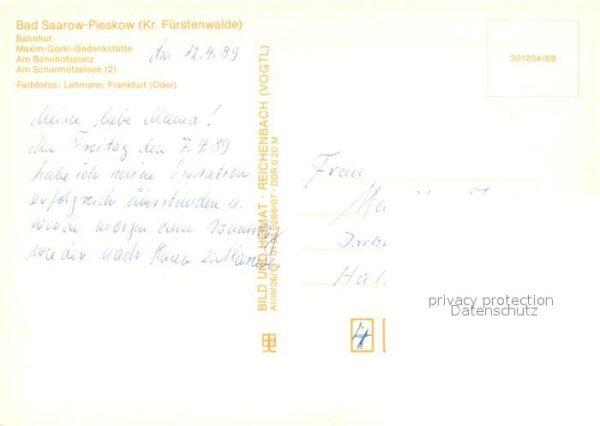 Bad Saarow-Pieskow (Kr. Fürstenwalde)
Bahnhof
Maxim-Gorki-Gedenkstätte
Am Bahnhofsplatz
Am Scharmützelsee (2)
Farbfotos: Lehmann, Frankfurt (Oder)
12.4.89
Meine liebe Mama!
Am Freitag den 7.4.89
habe ich meine Operation
erfolgreich überstanden u.
werde morgen zum Donnerstag
wieder nach Hause entlassen
BILD UND HEIMAT · REICHENBACH (VOGTL)
A1/III/26/13 DDR 0,20 M
301204/88
Frau
4
privacy protection
Datenschutz